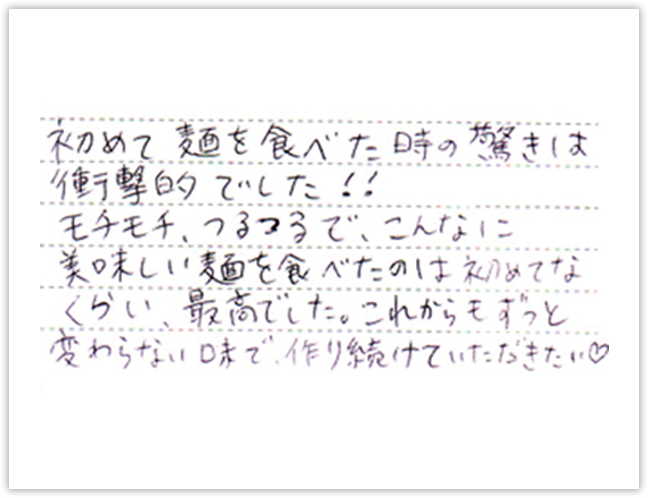 初めて麺を食べた時の驚きは
衝撃的でした!!
モチモチ、つるつるで、こんなに
美味しい麺を食べたのは初めてな
くらい、最高でした。これからもずっと
変わらない味で、作り続けていただきたい♡